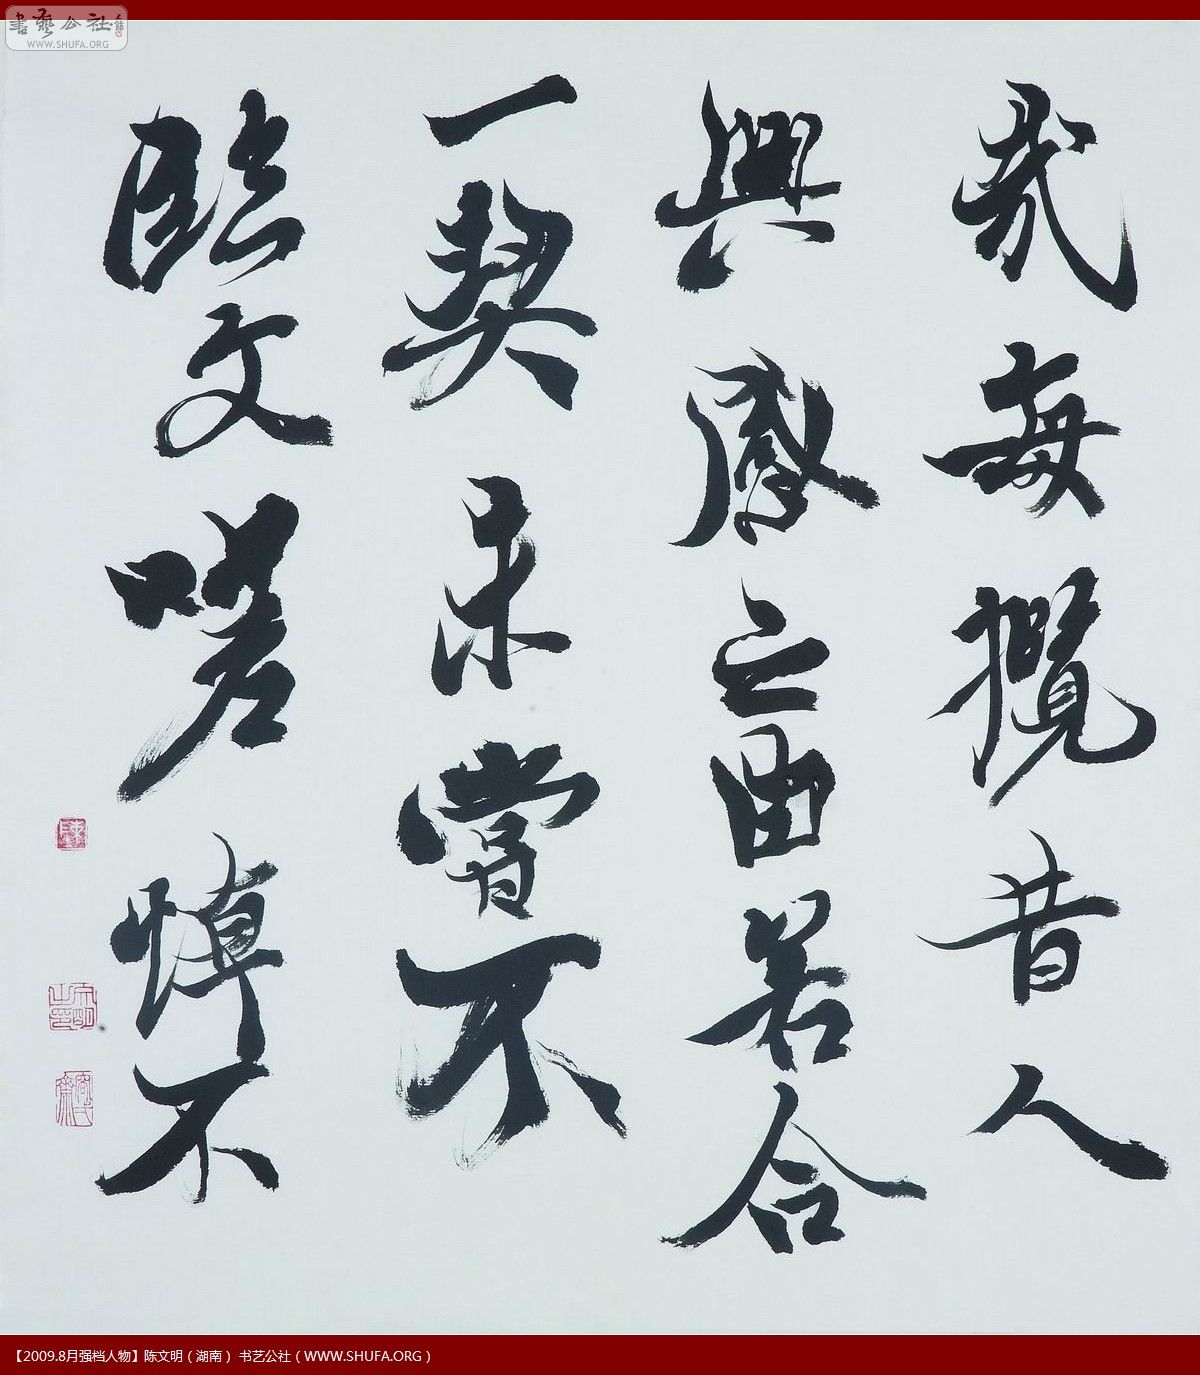 哉每攬昔人
興感之由若合
一契未嘗不
臨文嗟悼不
陳
文明之印
書藝公社
WWW.SHUFA.ORG
【2009.8月强档人物】陈文明（湖南） 书艺公社（WWW.SHUFA.ORG）